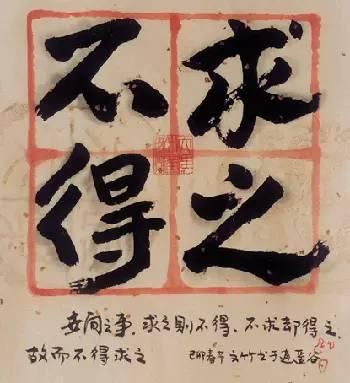 求之
不得
世间之事、求之则不得、不求却得之
故而不得求之